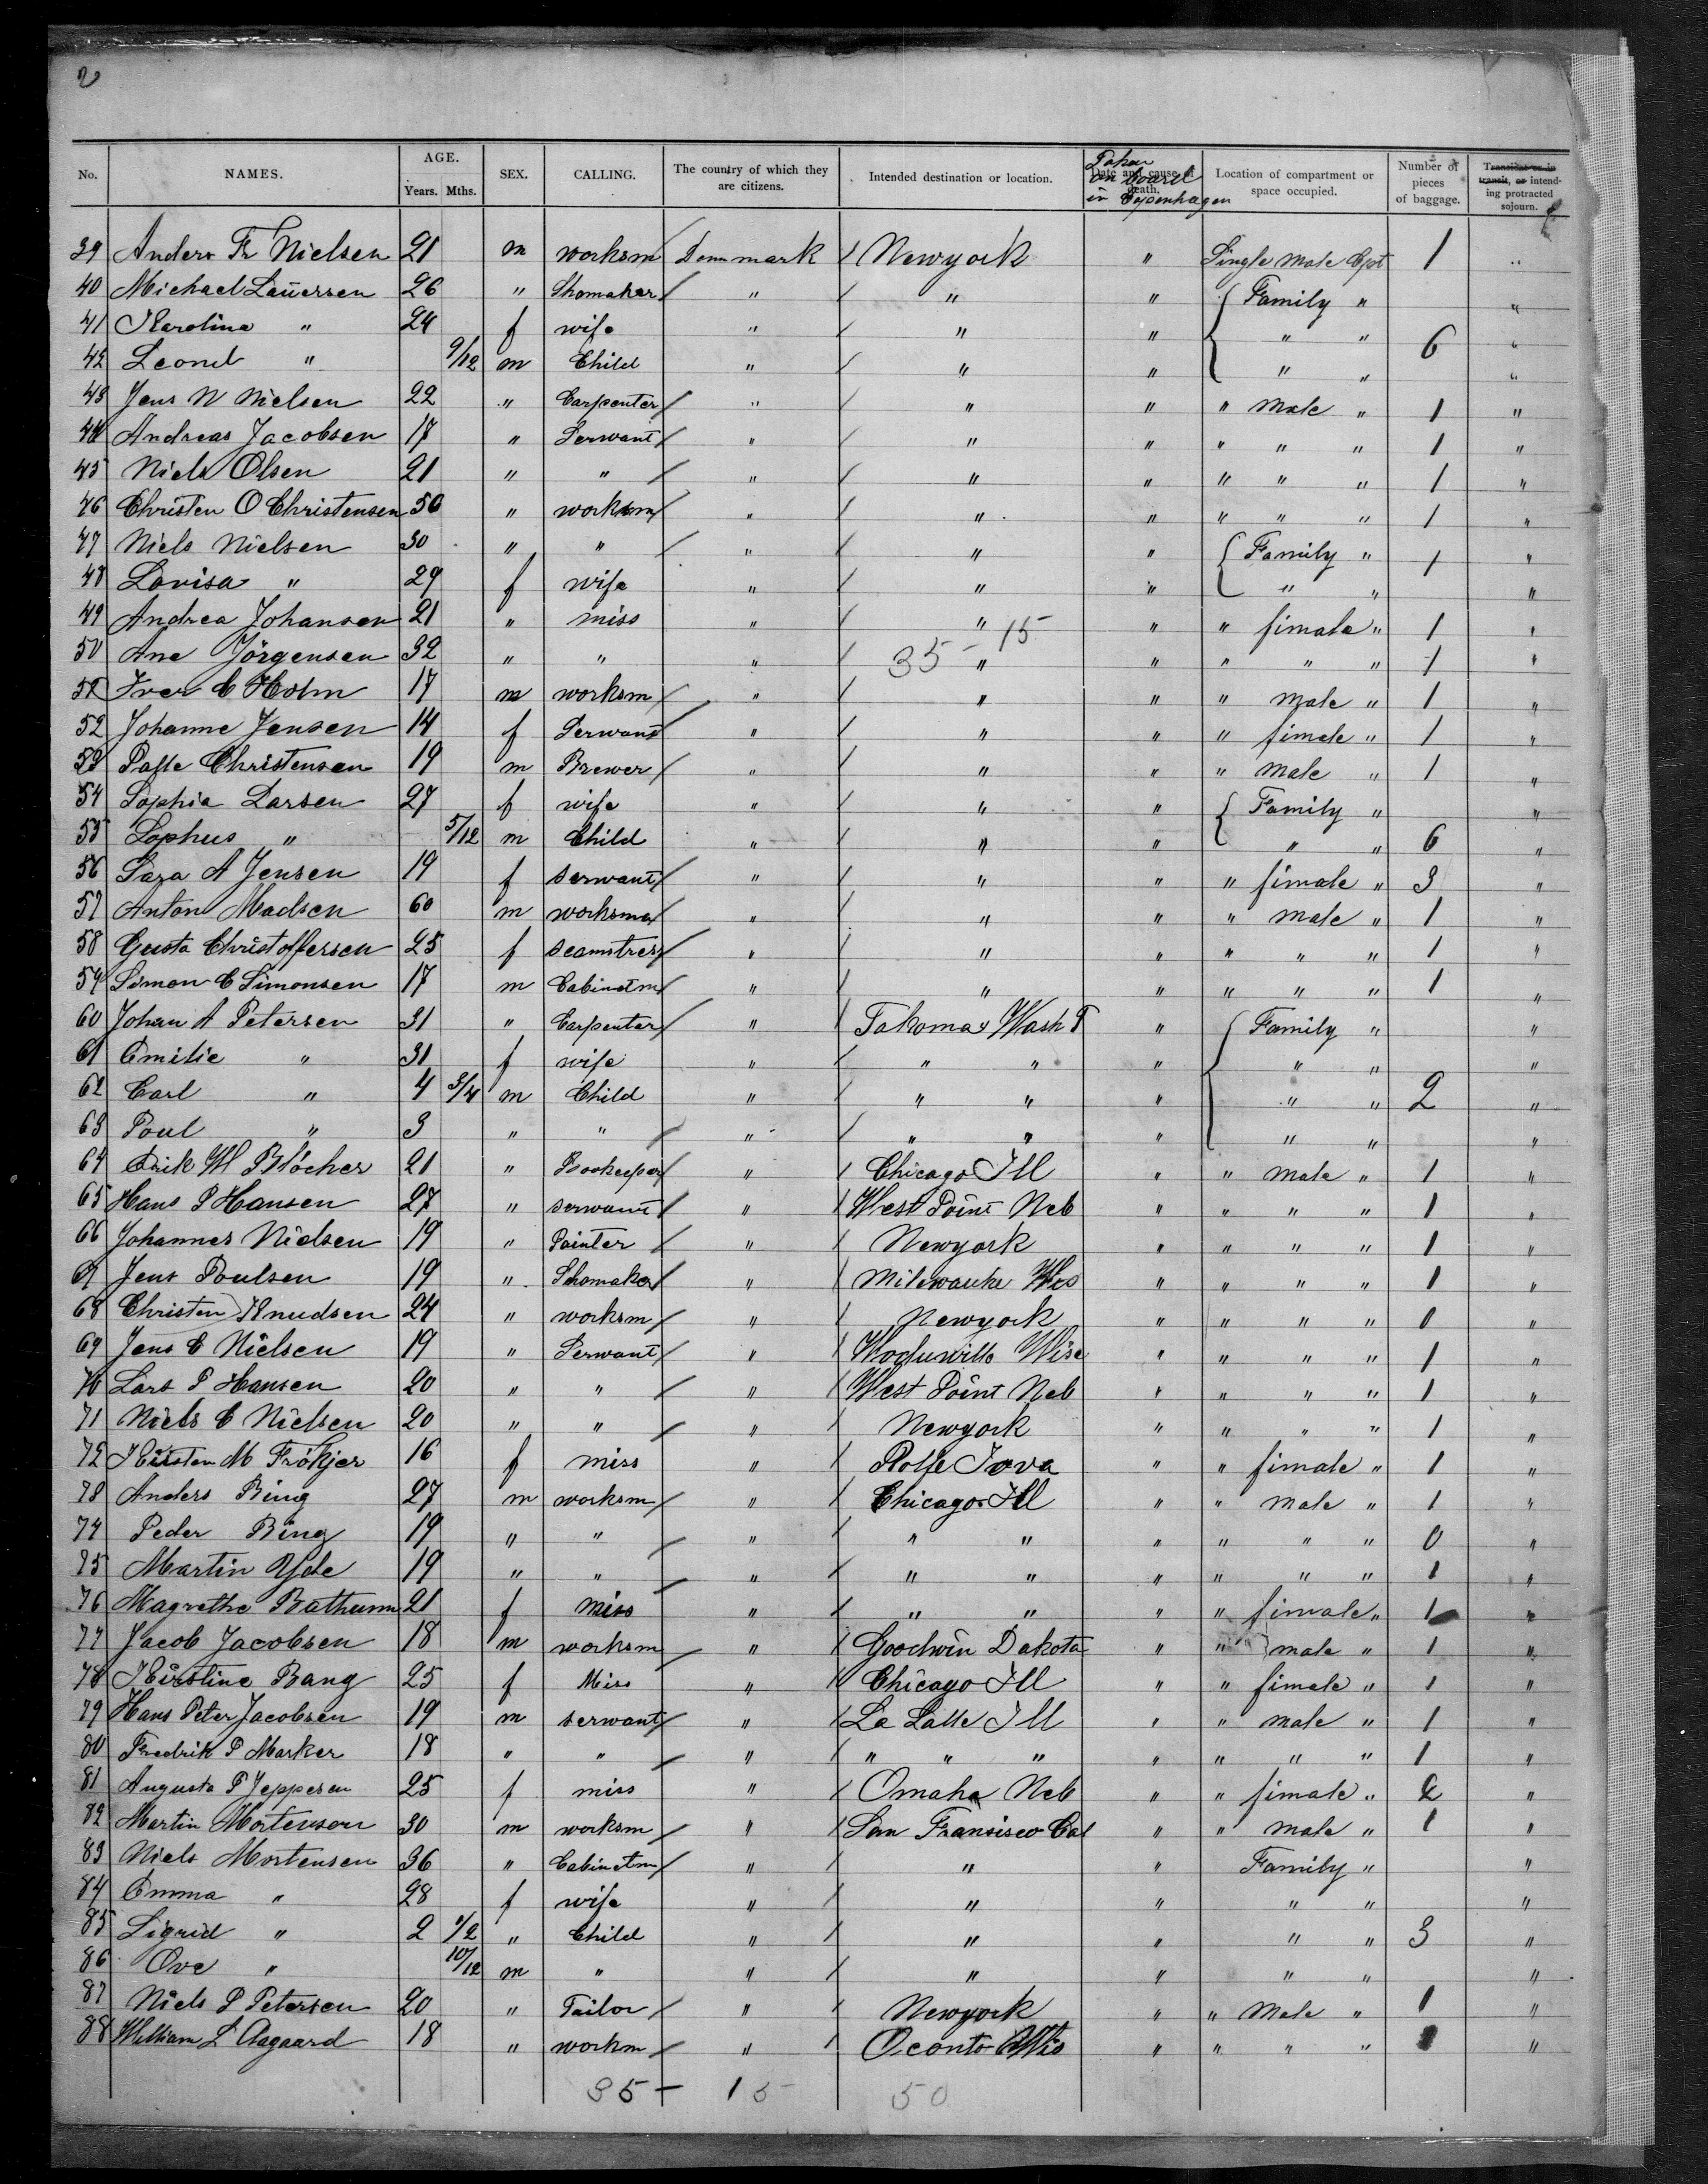 2
No. NAMES. AGE. Years. Mths. SEX. CALLING. The country of which they are citizens. Intended destination or location. Date and cause of death. Taken on board in Copenhagen Location of compartment or space occupied. Number of pieces of baggage. Transient or in transit, or intending protracted sojourn.
39 Anders Fr Nielsen 21 m worksm Denmark / Newyork " Single male Cpt 1 "
40 Michael Lauersen 26 " Shomaker / " / " " { Family " "
41 Karoline " 24 f wife " / " " " " 6 "
42 Leond " 9/12 m Child " / " " " " "
43 Jens N Nielsen 22 " Carpenter / " / " " " male " 1 "
44 Andreas Jacobsen 17 " Serwant / " / " " " " " 1 "
45 Niels Olsen 21 " " / " / " " " " " 1 "
46 Christen O Christensen 56 " worksm / " / " " " " " 1 "
47 Niels Nielsen 30 " " / " / " " { Family " 1 "
48 Lovisa " 29 f wife " / " " " " "
49 Andrea Johansen 21 " miss " / " " " fimale " 1 "
35 - 15
50 Ane Jörgensen 32 " " " / " " " " " 1 "
51 Iver C Holm 17 m worksm / " / " " " male " 1 "
52 Johanne Jensen 14 f Serwant / " / " " " fimale " 1 "
53 Palle Christensen 19 m Brewer / " / " " " male " 1 "
54 Sophia Larsen 27 f wife " / " " { Family " "
55 Sophus " 5/12 m Child " / " " " " 6 "
56 Sara A Jensen 19 f serwant / " / " " " fimale " 3 "
57 Anton Madsen 60 m worksma / " / " " " male " 1 "
58 Gusta Christoffersen 25 f seamstress / " / " " " " " 1 "
59 Simon C Simonsen 17 m Cabinetm / " / " " " " " 1 "
60 Johan A Petersen 31 " Carpenter / " / Takoma Wash T " { Family " "
61 Emilie " 31 f wife " / " " " " " "
62 Carl " 4 3/4 m Child " / " " " " " 2 "
63 Poul " 3 " " / " / " " " " " "
64 Erik W Blöcher 21 " Bookeeper / " / Chicago Ill " " male " 1 "
65 Hans P Hansen 27 " serwant / " / West Point Neb " " " " 1 "
66 Johannes Nielsen 19 " Painter / " / Newyork " " " " 1 "
67 Jens Poulsen 19 " Shomaker / " / Milewauke Wis " " " " 1 "
68 Christen Knudsen 24 " worksm / " / Newyork " " " " 0 "
69 Jens C Nielsen 19 " Serwant / " / Wise " " " " 1 "
70 Lars P Hansen 20 " " / " / West Point Neb " " " " 1 "
71 Niels C Nielsen 20 " " " / Newyork " " " " 1 "
72 Kirsten M Frökjer 16 f miss " / Rolfe Iova " " fimale " 1 "
73 Anders Bing 27 m worksm / " / Chicago Ill " " male " 1 "
74 Peder Bing 19 " " / " / " " " " " " 0 "
75 Martin Yde 19 " " / " / " " " " " " 1 "
76 Magrethe Bathum 21 f miss " / " " " " fimale " 1 "
77 Jacob Jacobsen 18 m worksm / " / Goodwin Dakota " " male " 1 "
78 Kirstine Bang 25 f Miss " / Chicago Ill " " fimale " 1 "
79 Hans Peter Jacobsen 19 m serwant / " / La Salle Ill " " male " 1 "
80 Fredrik P Marker 18 " " / " / " " " " " " " 1 "
81 Augusta P Jeppesen 25 f miss " / Omaha Neb " " fimale " 2 "
82 Martin Mortenson 30 m worksm / " / San Fransisco Cal " " male " 1 "
83 Niels Mortensen 36 " Cabinetm / " / " " Family " "
84 Emma " 28 f wife " / " " " " "
85 Sigrid " 2 1/2 " Child " / " " " " 3 "
86 Ove " 10/12 m " " / " " " " "
87 Niels P Petersen 20 " Tailor / " / Newyork " " Male " 1 "
88 William L Aagaard 18 " workm / " / Oconto Wis " " " " 1 "
35 - 15 50